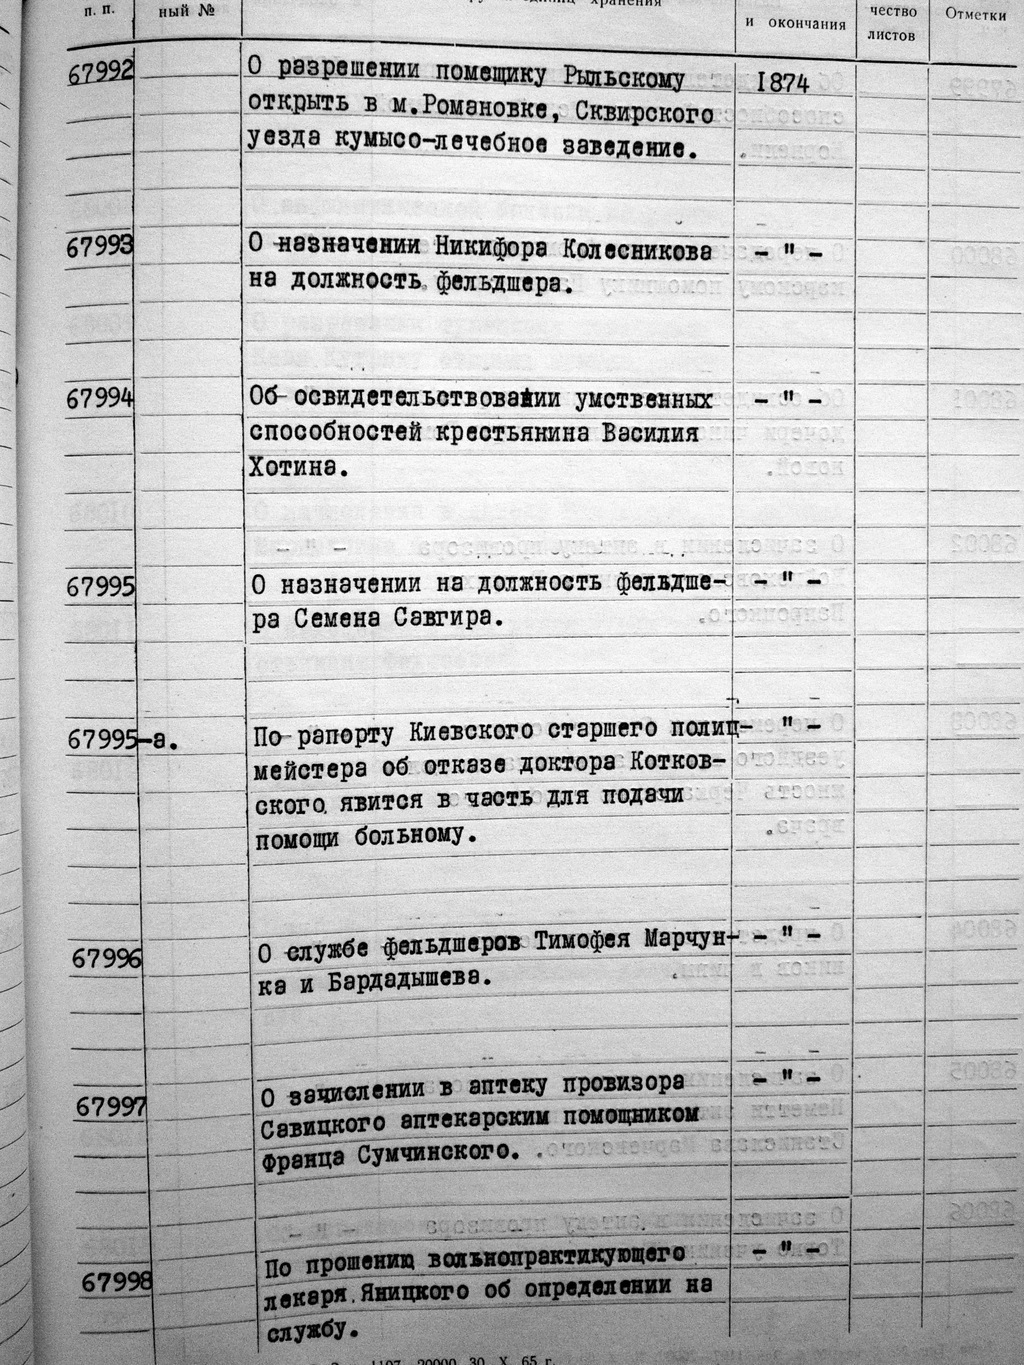 п. п.
ный №
хранения
и окончания
чество
листов
Отметки
67992
О разрешении помещику Рыльскому
1874
открыть в м.Романовке, Сквирского
уезда кумысо-лечебное заведение.
67993
О назначении Никифора Колесникова
- " -
на должность фельдшера.
67994
Об освидетельствовании умственных
- " -
способностей крестьянина Василия
Хотина.
67995
О назначении на должность фельдше-
- " -
ра Семена Савгира.
67995-а.
По рапорту Киевского старшего полиц-
- " -
мейстера об отказе доктора Котков-
ского явится в часть для подачи
помощи больному.
67996
О службе фельдшеров Тимофея Марчун-
- " -
ка и Бардадышева.
67997
О зачислении в аптеку провизора
- " -
Савицкого аптекарским помощником
Франца Сумчинского.
67998
По прошению вольнопрактикующего
- " -
лекаря Яницкого об определении на
службу.
1107 20000 30. X. 65 г.